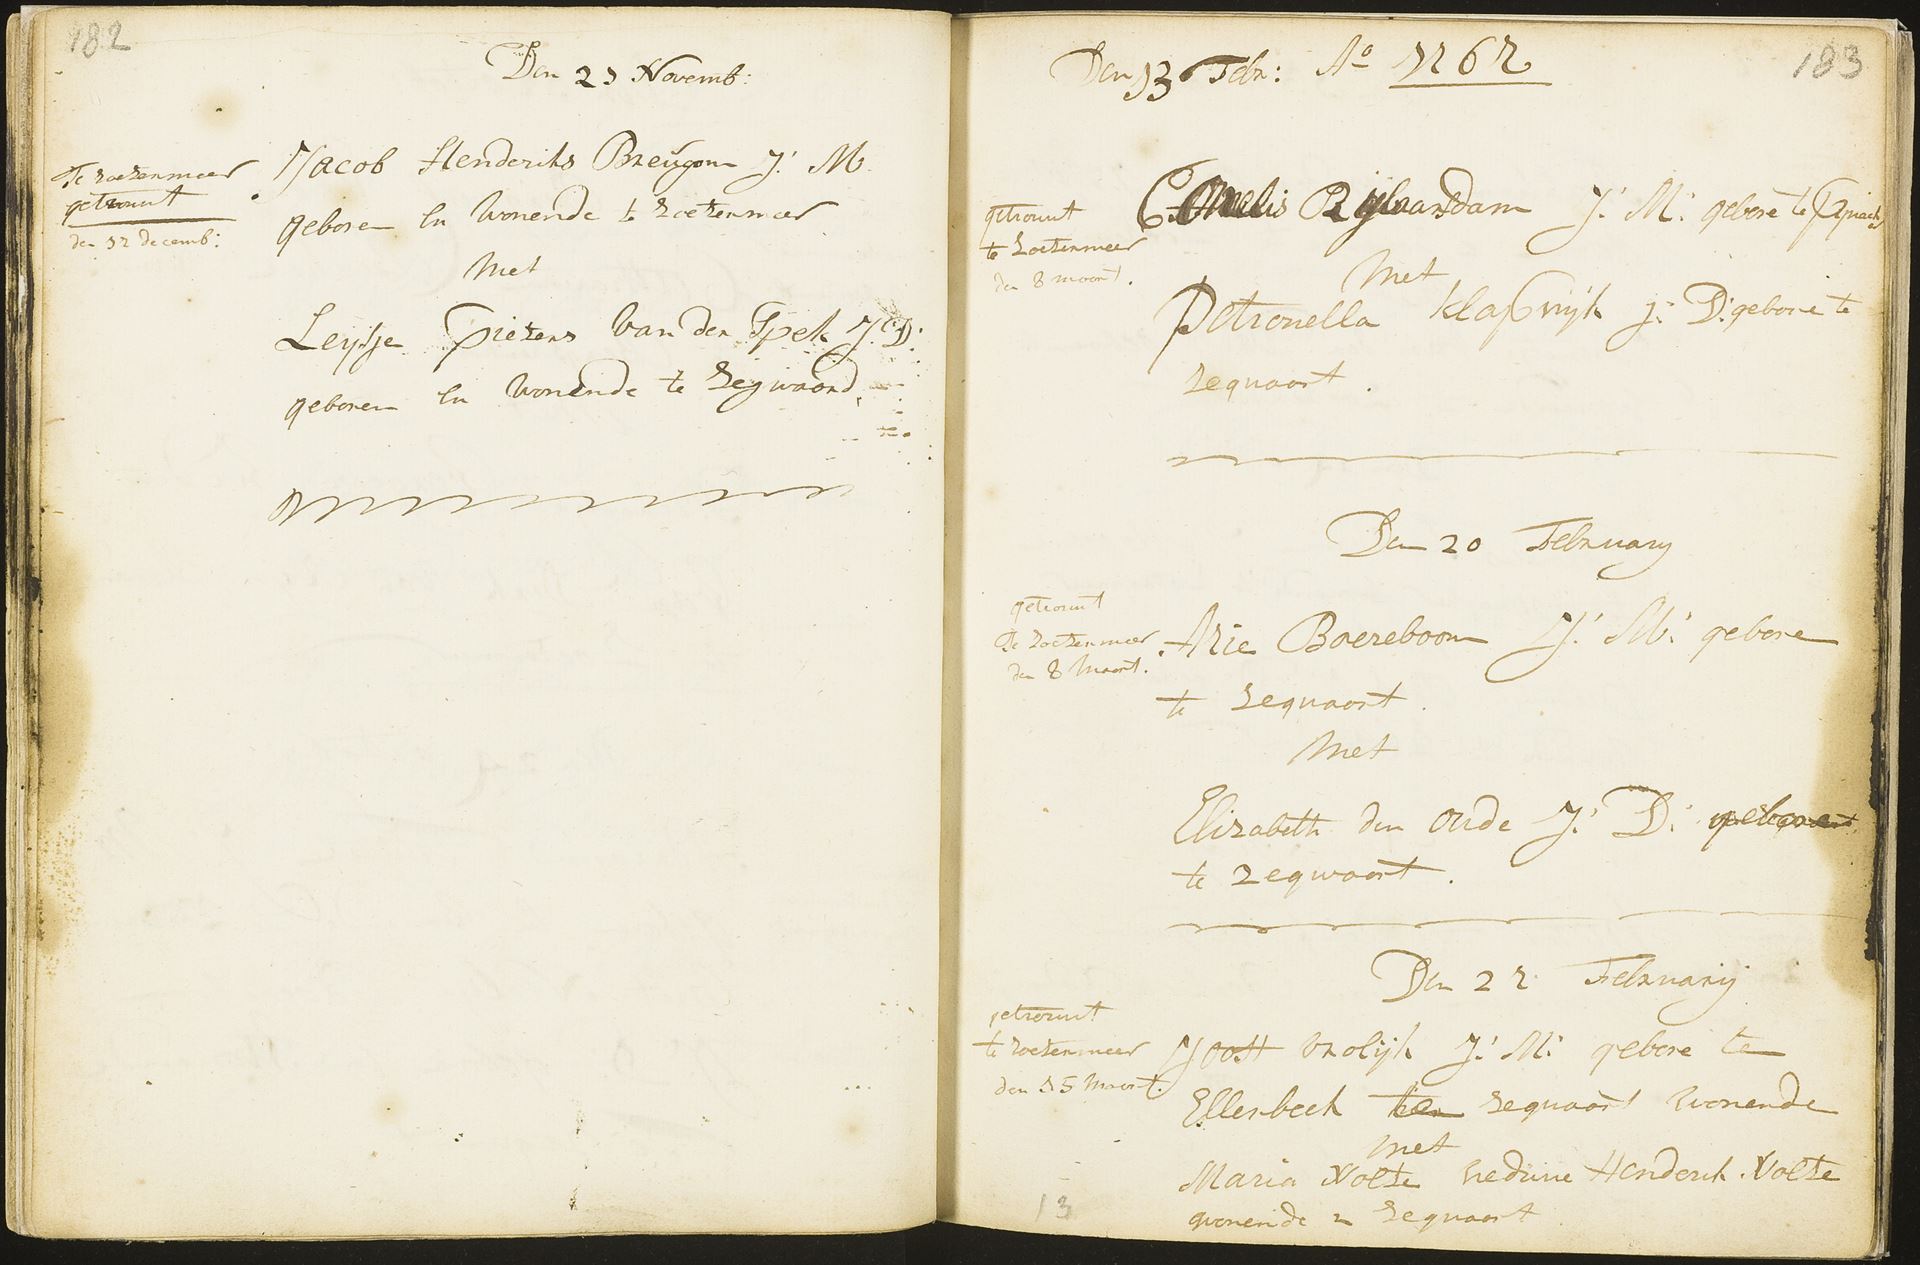 182
Den 21 Novemb:
Te zoetenmeer
getrouwt
den 12 decemb:
Jacob Hendriks Breugom J: M.
geboren En Wonende te zoetenmeer
Met
Leijtje Pieters Van der Spek J: D:
geboren En Wonende te Zegwaard.
183
Den 13 Febr: Ao 1762
getrouwt
te Zoetenmeer
den 8 maart.
Cornelis Rijlaarsdam J: M: gebore te
Met
Petronella Klapwijk J: D: gebore te
Zegwaart.
Den 20 February
getrouwt
Te Zoetenmeer
den 8 Maart.
Arie Boereboom J: M: gebore
te Zegwaart.
Met
Elizabeth den Oude J: D: gebore
te Zegwaart.
Den 22 February
getrouwt
te zoetenmeer
den 15 Maart.
Joost Vrolijk J: M: gebore te
Ellesbeek Zegwaart Wonende
met
Maria Nolte weduwe Henderik Nolte
wonende Zegwaart
13